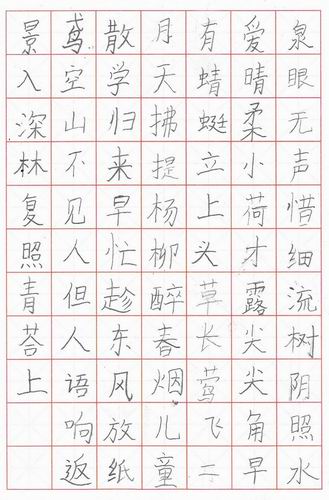 泉眼无声惜细流树阴照水
爱晴柔小荷才露尖尖角早
有蜻蜓立上头草长莺飞二
月天拂提杨柳醉春烟儿童
散学归来早忙趁东风放纸
鸢空山不见人但人语响返
景入深林复照青苔上